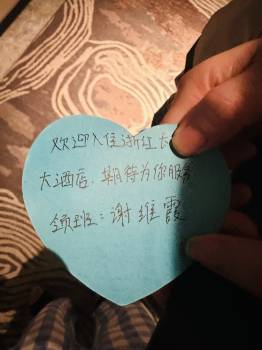 欢迎入住浙江大
大酒店，期待为你服务
领班：谢维霞